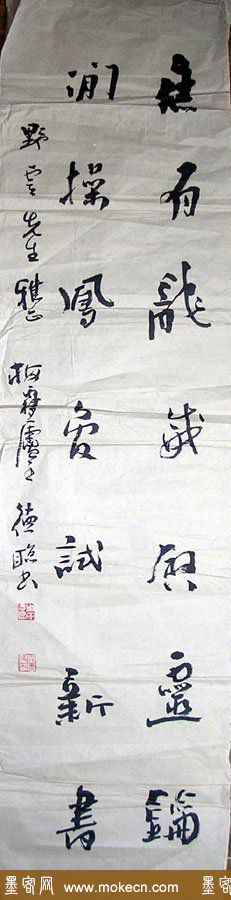 有龍威啟靈鑰
閒操鳳試新書
野雲先生雅正
廬主 德聰書
墨客网 www.mokecn.com 墨客